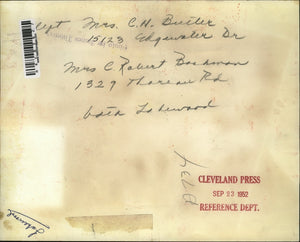 Mrs. C. H. Butler
15123 Edgewater Dr
Mrs C Robert Bachman
1329 Thoreau Rd
both Lakewood
CLEVELAND PRESS
SEP 23 1952
REFERENCE DEPT.